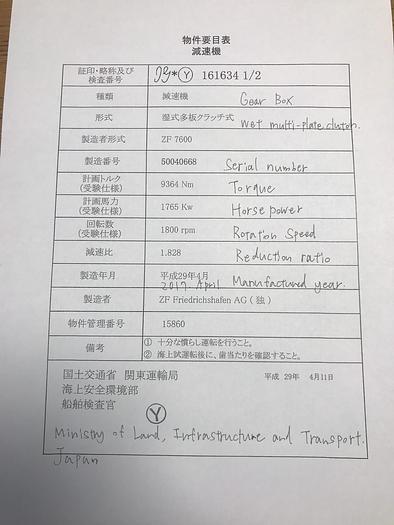 物件要目表
減速機
証印・略称及び
検査番号
Ⓨ 161634 1/2
種類 減速機 Gear Box
形式 湿式多板クラッチ式 wet multi-plate clutch.
製造者形式 ZF 7600
製造番号 50040668 Serial number
計画トルク
(受験仕様)
9364 Nm Torque
計画馬力
(受験仕様)
1765 Kw Horse power
回転数
(受験仕様)
1800 rpm Rotation Speed
減速比 1.828 Reduction ratio
製造年月 平成29年4月 Manufactured year.
2017. April
製造者 ZF Friedrichshafen AG ( 独 )
物件管理番号 15860
備考
① 十分な慣らし運転を行うこと。
② 海上試運転後に、歯当たりを確認すること。
国土交通省 関東運輸局 平成 29年 4月11日
海上安全環境部
船舶検査官
Ⓨ
Ministry of Land, Infrastructure and Transport.
Japan